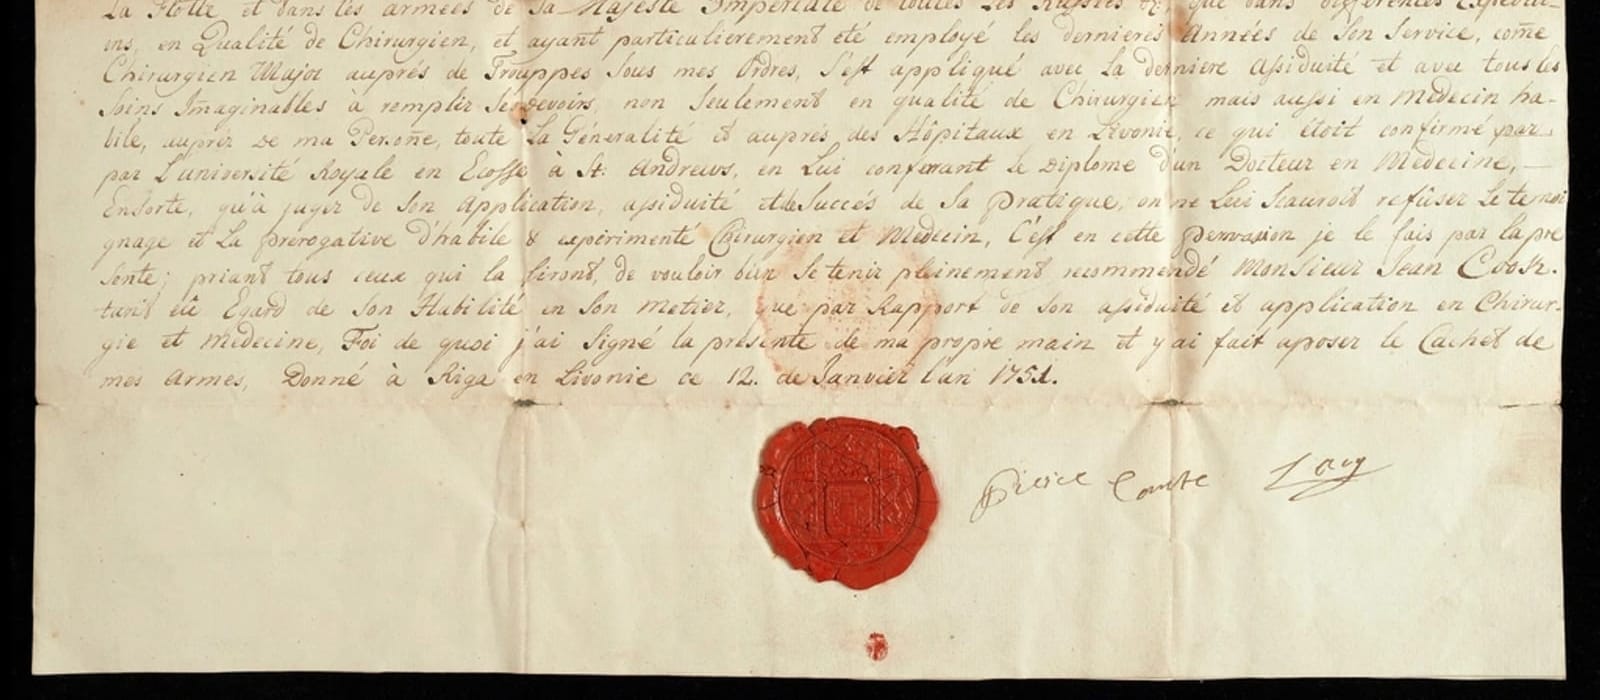 La Flotte et dans les armées de Sa Majesté Imperiale de toutes Les Russies &c. que dans differentes Expediti-
ons, en Qualité de Chirurgien, et ayant particulierement eté employé les dernieres Années de Son Service, come
Chirurgien Major auprés de Trouppes Sous mes Ordres, S'est appliqué avec La derniere assiduité et avec tous les
Soins Imaginables à remplir Ses devoirs, non Seulement en qualité de Chirurgien mais aussi en Medecin ha-
bile, aupréz de ma Persone, toute La Géneralité et auprés des Hôpitaux en Livonie, ce qui étoit confirmé par
par L'université Royale en Ecosse à St. Andrews, en Lui conferrant le Diplome d'un Docteur en Médecine, —
Ensorte, qu'à juger de Son Application, assiduité et de Succés de Sa pratique, on ne Lui Scauroit refûser Le temoi
gnage et La prerogative d'habile & expérimenté Chirurgien et Medecin, C'est en cette je le fais par la pre
sente; priant tous ceux qui la liront, de vouloir bien Se tenir pleinement recommendé Monsieur Jean Cook.
tant eû Egard de Son Habilité en Son metier, que par Rapport de Son assiduité et application en Chirur-
gie et Medecine, Foi de quoi j'ai Signé la présente de ma propre main et y ai fait aposer le Cachet de
mes Armes, Donné à Riga en Livonie ce 12. de Janvier l'an 1751.
Pierre Comte Lacy